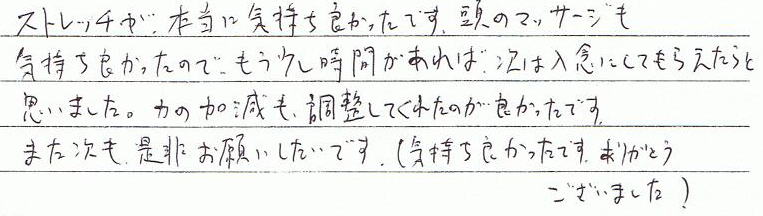 ストレッチが、本当に気持ち良かったです。頭のマッサージも
気持ち良かったので、もう少し時間があれば、次は入念にしてもらえたらと
思いました。力の加減も、調整してくれたのが良かったです。
また次も、是非お願いしたいです。(気持ち良かったです。ありがとう
ございました)